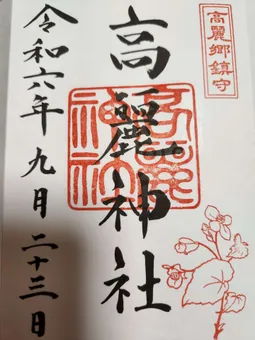 高麗郷鎮守
高麗神社
高麗神社
令和六年九月二十三日